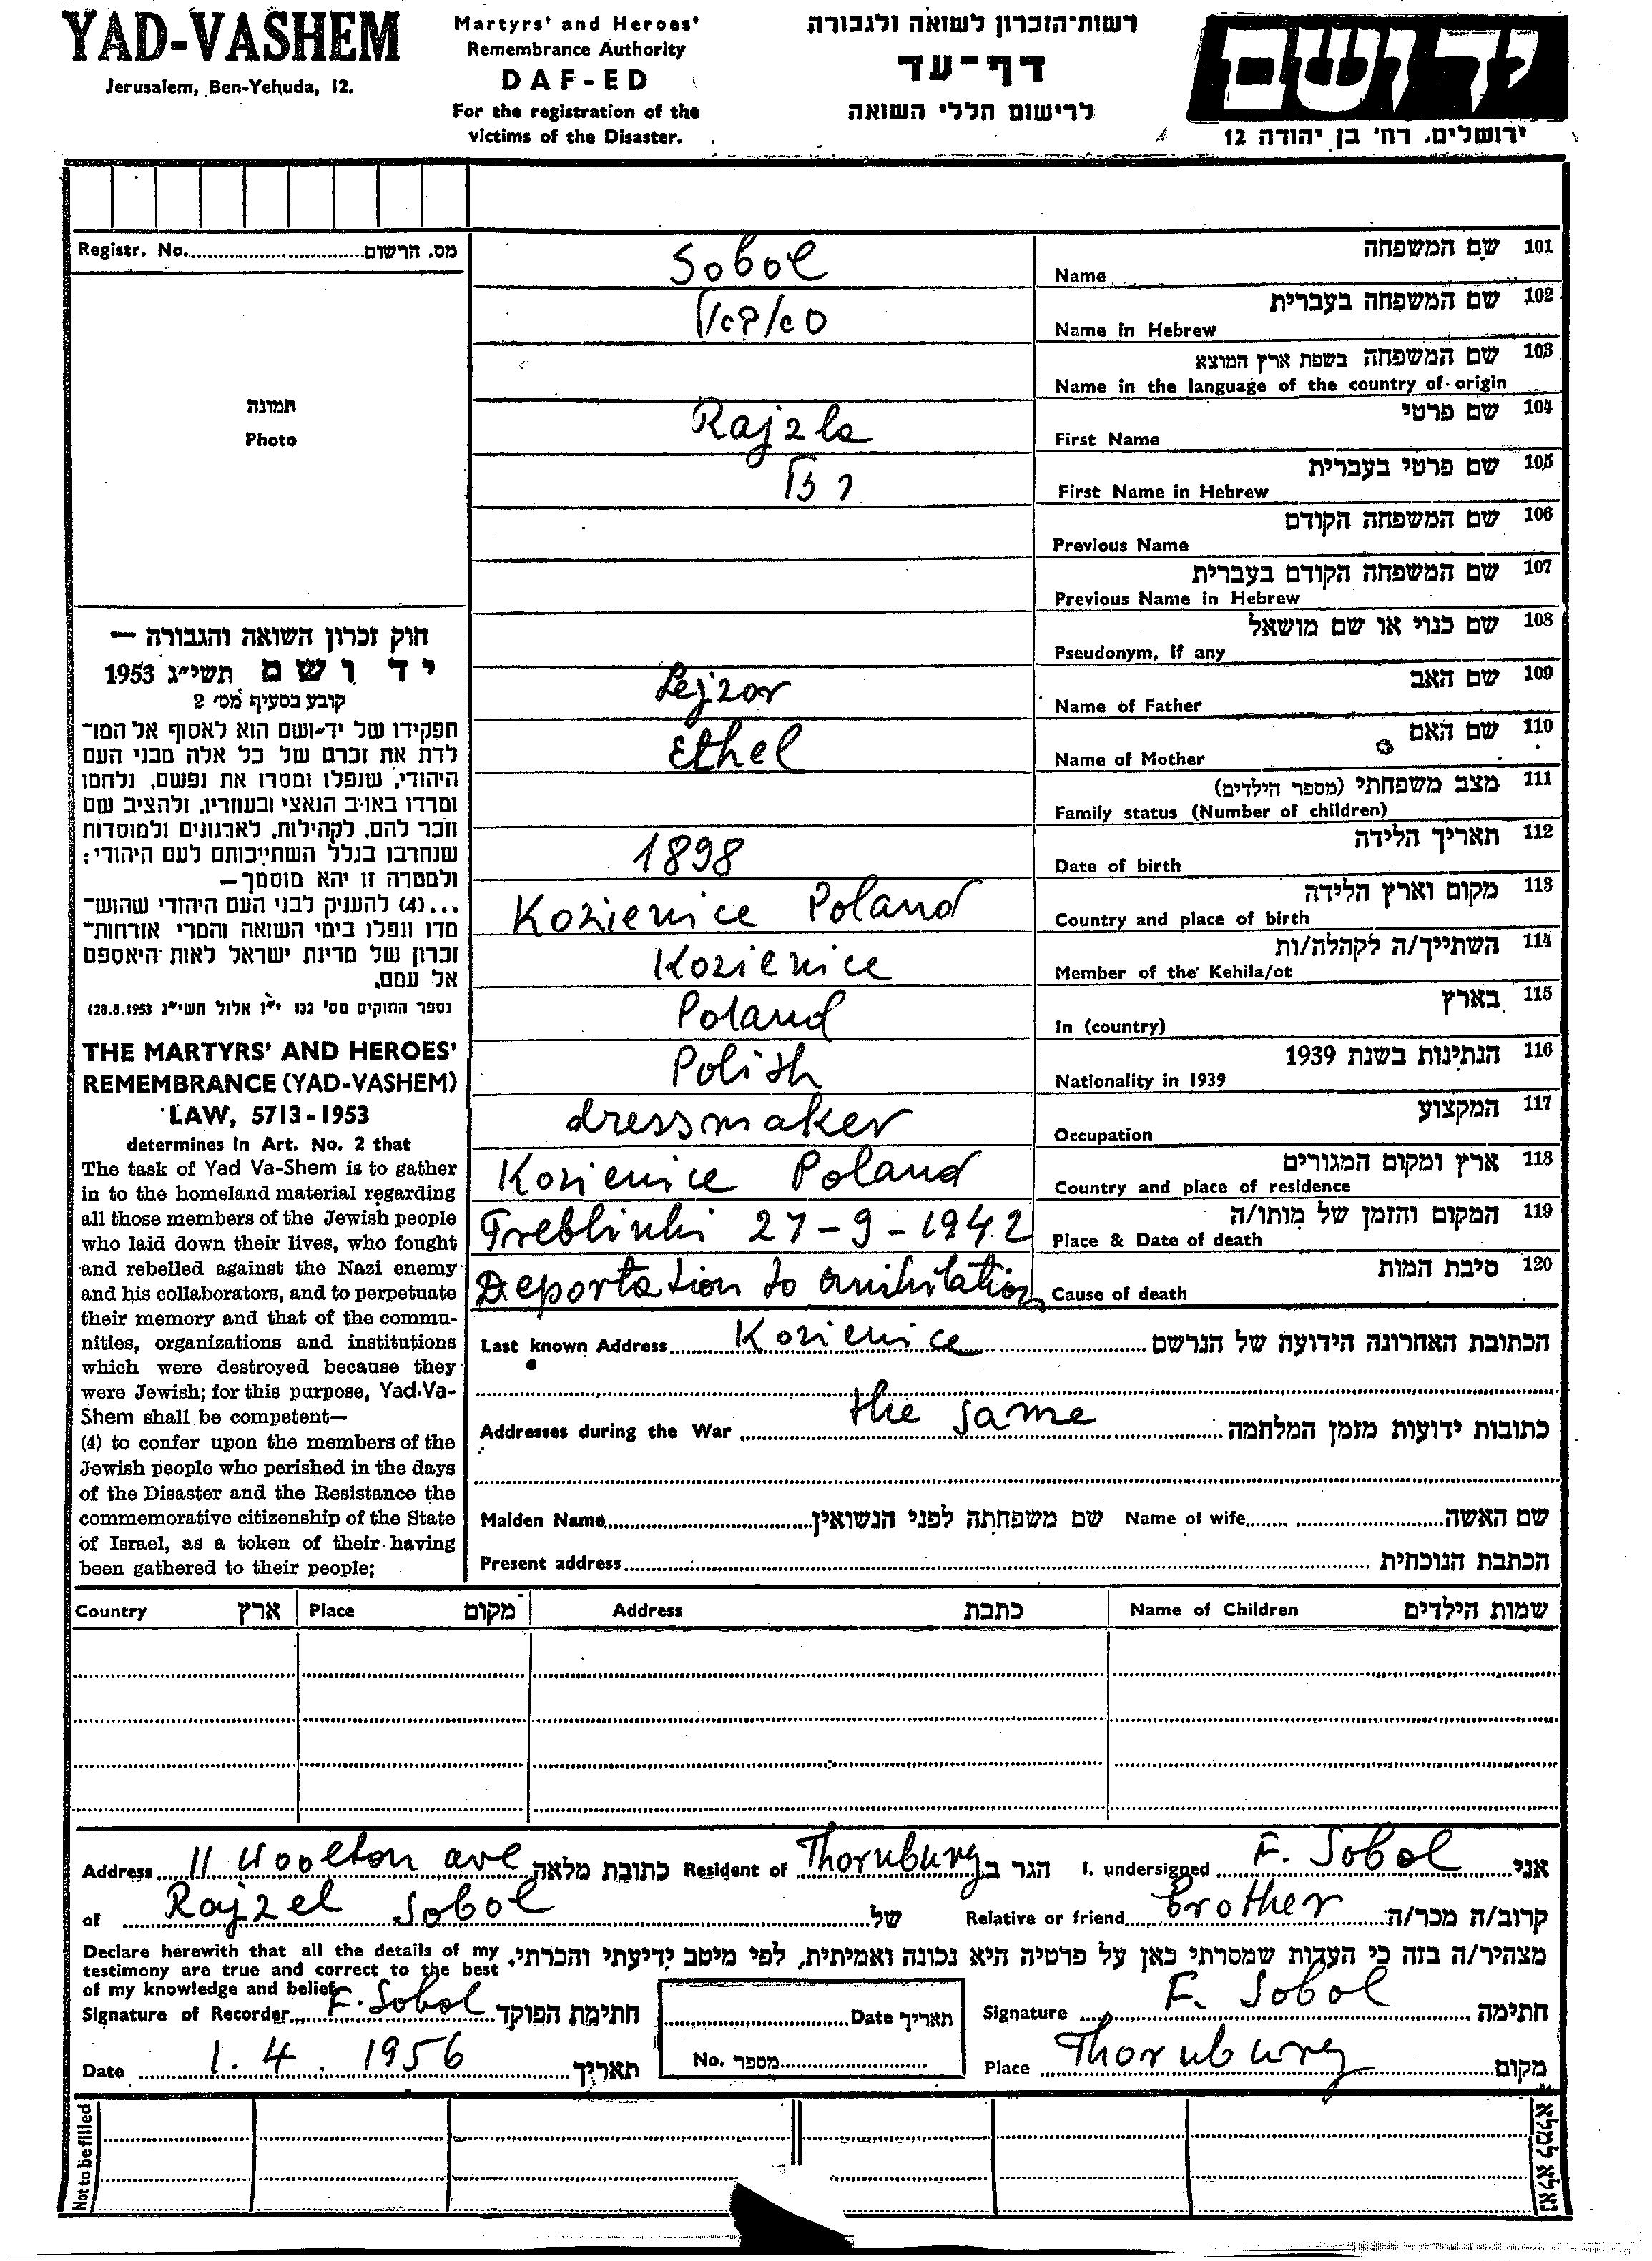 YAD-VASHEM
Jerusalem, Ben-Yehuda, 12.
Martyrs' and Heroes'
Remembrance Authority
DAF-ED
For the registration of the
victims of the Disaster.
רשות־הזכרון לשואה ולגבורה
דף־עד
לרישום חללי השואה
יד ושם
ירושלים, רח' בן יהודה 12
Registr. No. מס. הרשום
תמונה
Photo
חוק זכרון השואה והגבורה —
יד ושם תשי״ג 1953
קובע בסעיף מס׳ 2
תפקידו של יד־ושם הוא לאסוף אל המו־
לדת את זכרם של כל אלה מבני העם
היהודי, שנפלו ומסרו את נפשם, נלחמו
ומרדו באויב הנאצי ובעוזריו, ולהציב שם
וזכר להם, לקהילות, לארגונים ולמוסדות
שנחרבו בגלל השתייכותם לעם היהודי;
ולמטרה זו יהא מוסמך—
...(4) להעניק לבני העם היהודי שהוש־
מדו ונפלו בימי השואה והמרי אזרחות־
זכרון של מדינת ישראל לאות היאספם
אל עמם.
(ספר החוקים מס' 132 י״ז אלול תשי״ג 28.8.1953)
THE MARTYRS' AND HEROES'
REMEMBRANCE (YAD-VASHEM)
LAW, 5713-1953
determines in Art. No. 2 that
The task of Yad Va-Shem is to gather
in to the homeland material regarding
all those members of the Jewish people
who laid down their lives, who fought
and rebelled against the Nazi enemy
and his collaborators, and to perpetuate
their memory and that of the commu-
nities, organizations and institutions
which were destroyed because they
were Jewish; for this purpose, Yad-Va-
Shem shall be competent—
(4) to confer upon the members of the
Jewish people who perished in the days
of the Disaster and the Resistance the
commemorative citizenship of the State
of Israel, as a token of their having
been gathered to their people;
Sobol Name שם המשפחה 101
Name in Hebrew שם המשפחה בעברית 102
Name in the language of the country of origin שם המשפחה בשפת ארץ המוצא 103
Rajzla First Name שם פרטי 104
First Name in Hebrew שם פרטי בעברית 105
Previous Name שם המשפחה הקודם 106
Previous Name in Hebrew שם המשפחה הקודם בעברית 107
Pseudonym, if any שם כנוי או שם מושאל 108
Lejzor Name of Father שם האב 109
Ethel Name of Mother שם האם 110
Family status (Number of children) מצב משפחתי (מספר הילדים) 111
1898 Date of birth תאריך הלידה 112
Kozienice Poland Country and place of birth מקום וארץ הלידה 113
Kozienice Member of the Kehila/ot השתייך/ה לקהלה/ות 114
Poland In (country) בארץ 115
Polish Nationality in 1939 הנתינות בשנת 1939 116
dressmaker Occupation המקצוע 117
Kozienice Poland Country and place of residence ארץ ומקום המגורים 118
Treblinki 27-9-1942 Place & Date of death המקום והזמן של מותו/ה 119
Deportation to anihilation Cause of death סיבת המות 120
Last known Address Kozienice הכתובת האחרונה הידועה של הנרשם
Addresses during the War the same כתובות ידועות מזמן המלחמה
Maiden Name שם משפחתה לפני הנשואין Name of wife שם האשה
Present address הכתבת הנוכחית
Country ארץ Place מקום Address כתבת Name of Children שמות הילדים
Address 11 Woolton ave כתובת מלאה Resident of Thornburg הגר ב I. undersigned F. Sobol אני
of Rajzel Sobol של Relative or friend brother קרוב/ה מכר/ה
מצהיר/ה בזה כי העדות שמסרתי כאן על פרטיה היא נכונה ואמיתית, לפי מיטב ידיעתי והכרתי.
Declare herewith that all the details of my
testimony are true and correct to the best
of my knowledge and belief
Signature of Recorder F. Sobol חתימת הפוקד Date תאריך Signature F. Sobol חתימה
Date 1.4.1956 תאריך No. מספר Place Thornburg מקום
Not to be filled נא לא למלא